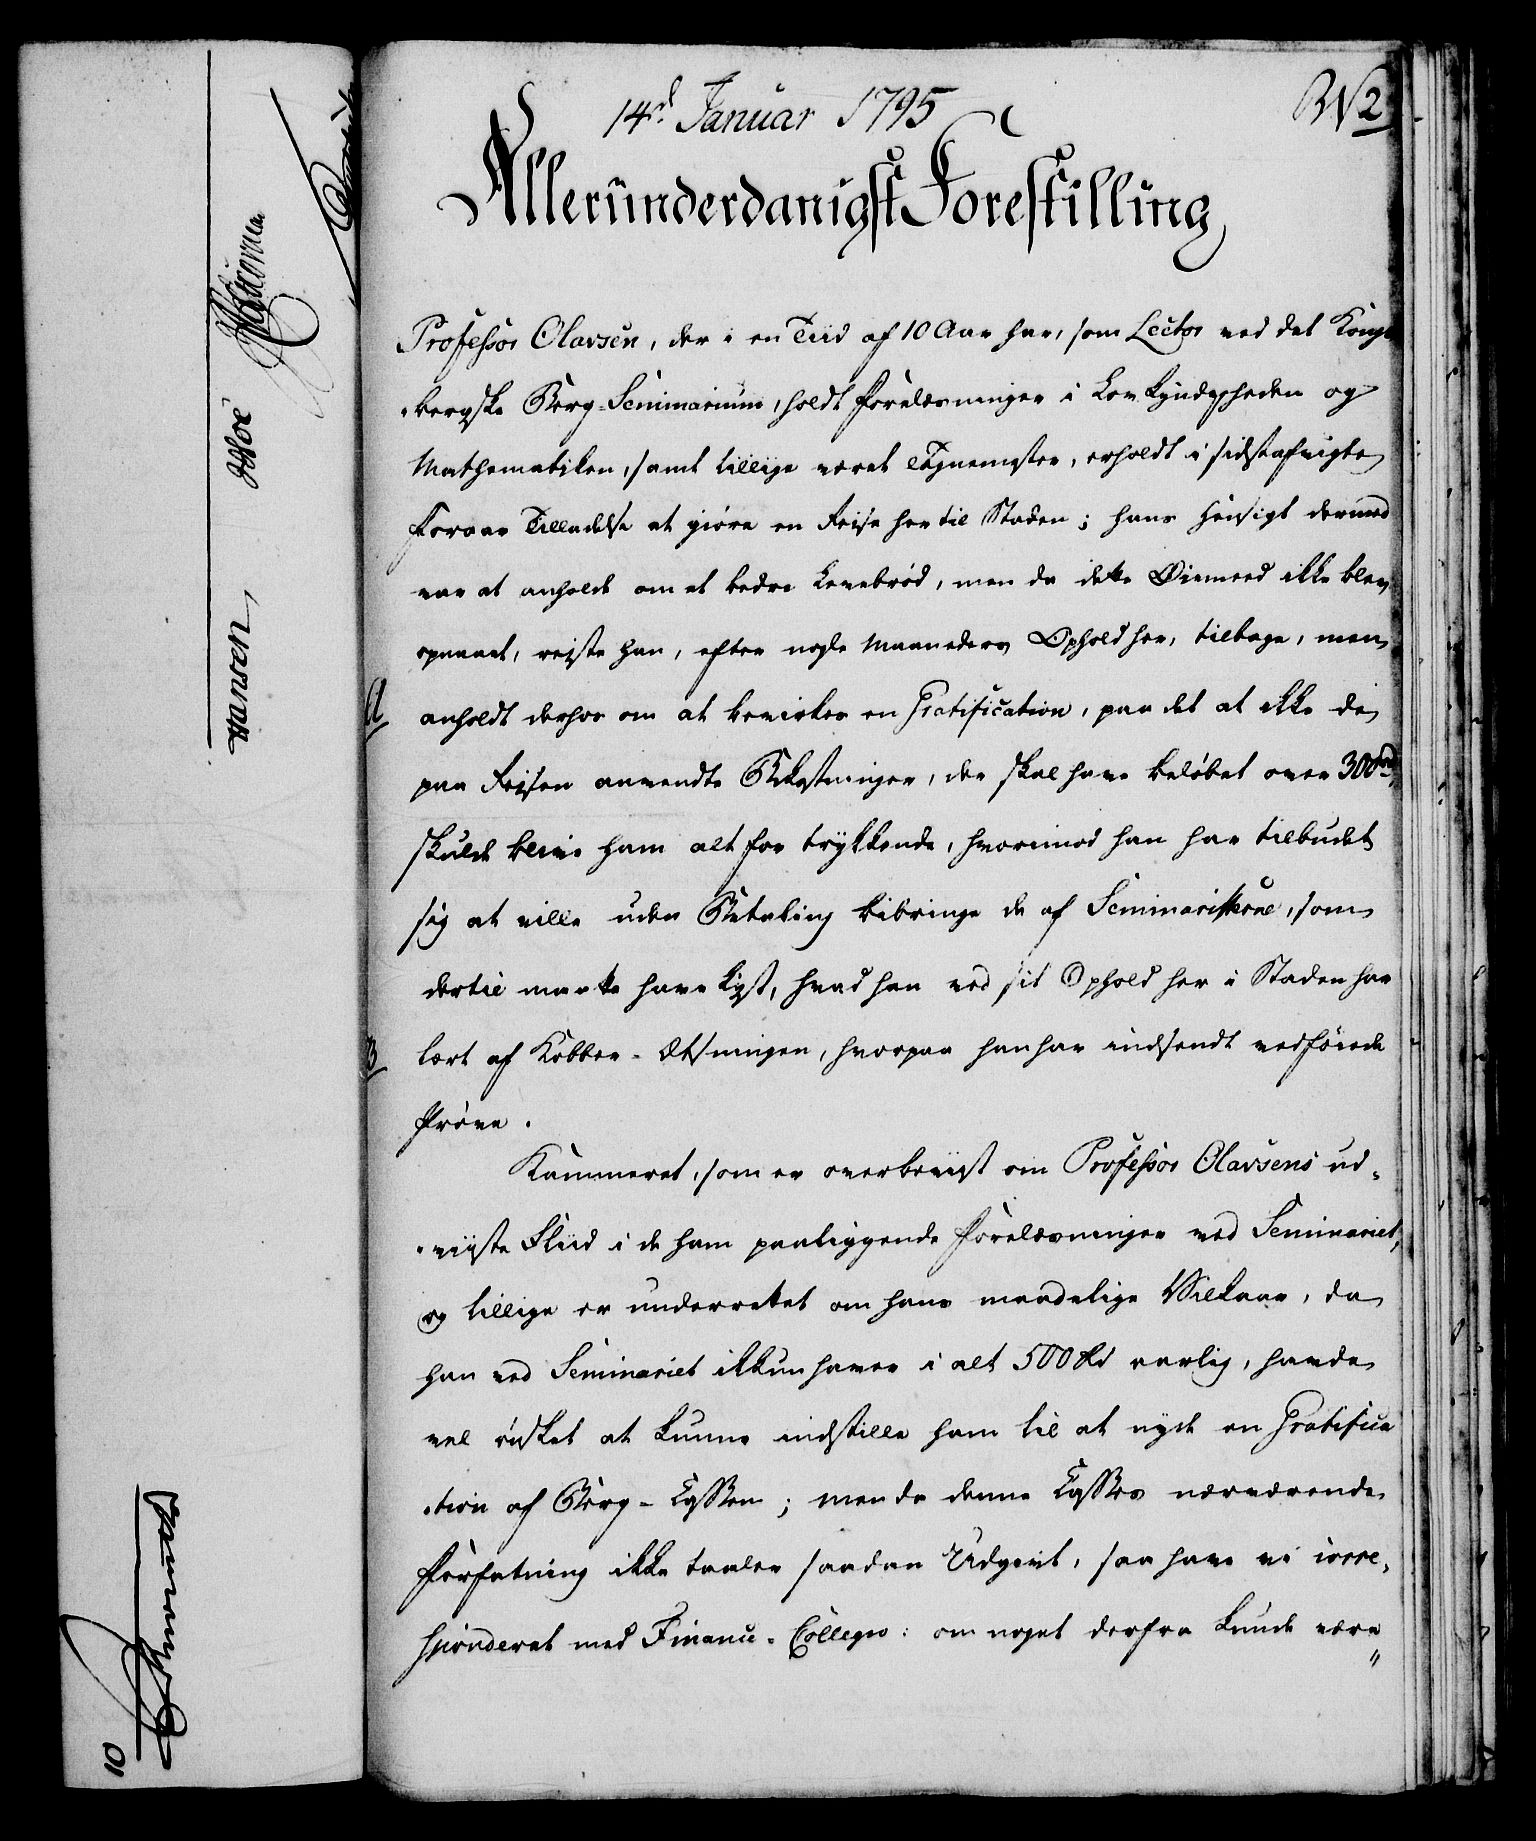 14d Januar 1795
BN2
Allerunderdanigst Forestilling
Professor Olavsen, der i en Tiid af 10 Aar har, som Lector ved det Kongs-
bergske Berg-Seminarium, holdt Forelæsninger i Lovkyndigheden og
Mathematiken, samt tillige været Tegnemester, erholdt i sidstafvigte
Foraar Tilladelse at giøre en Reise her til Staden; hans Hensigt dermed
var at anholde om et bedre Levebrød, men da dette Øiemeed ikke blev
opnaaet, reiste han, efter nogle Maaneders Ophold her, tilbage, men
A
anholdt derhos om at bevirkes en Gratification, paa det at ikke de
paa Reisen anvendte Bekostninger, der skal have beløbet over 300 Rd,
skulde blive ham alt for trykkende, hvorimod han har tilbudet
sig at ville uden Betaling bibringe de af Seminaristerne, som
dertil maatte have Lyst, hvad han ved sit Ophold her i Staden har
B
lært af Kobber-Ætsningen, hvorpaa han har indsendt vedføiede
Prøve.
Kammeret, som er overbeviist om Professor Olavsens ud-
-viiste Fliid i de ham paaliggende Forelæsninger ved Seminariet,
og tillige er underrettet om hans maadelige Vilkaar, da
han ved Seminariet ikkun haver i alt 500 Rd aarlig, havde
vel ønsket at kunne indstille ham til at nyde en Gratifica
-tion af Berg-Cassen; men da denne Casses nærværende
Forfatning ikke taaler saadan Udgivt, saa have vi corre-
sponderet med Finance-Collegio: om noget derfra kunde være
Hansen
10